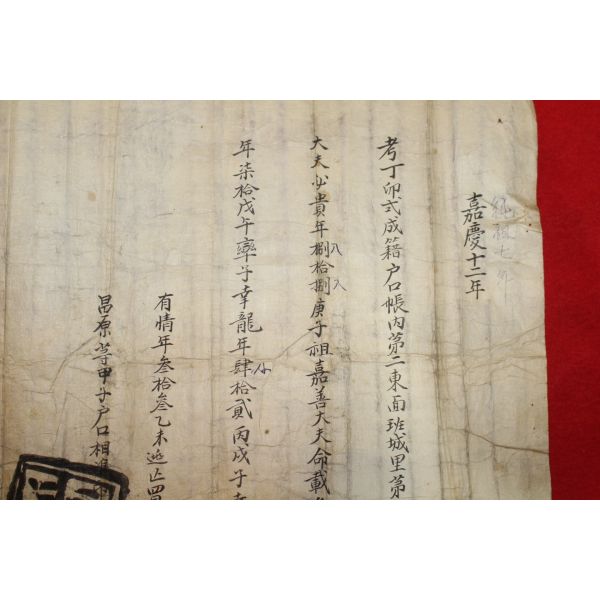 嘉慶十二年
考丁卯式成籍户口帳內第二東面班城里第
大夫必貴年捌拾捌庚子祖嘉善大夫命載
年柒拾戊午率子幸龍年肆拾貳丙戌子
有情年叁拾叁乙未逃亡四
昌原等甲子户口相準